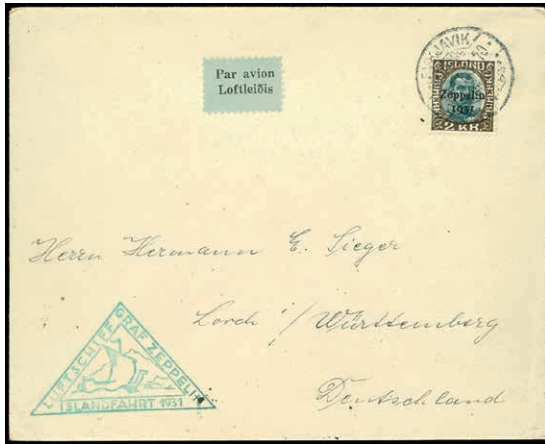 Par avion
Loftleiðis
ISLAND
Zeppelin
1931
2 KR.
Herrn Hermann E. Sieger
Lorch i/Württemberg
Deutschland
LUFTSCHIFF GRAF ZEPPELIN
ISLANDFAHRT 1931